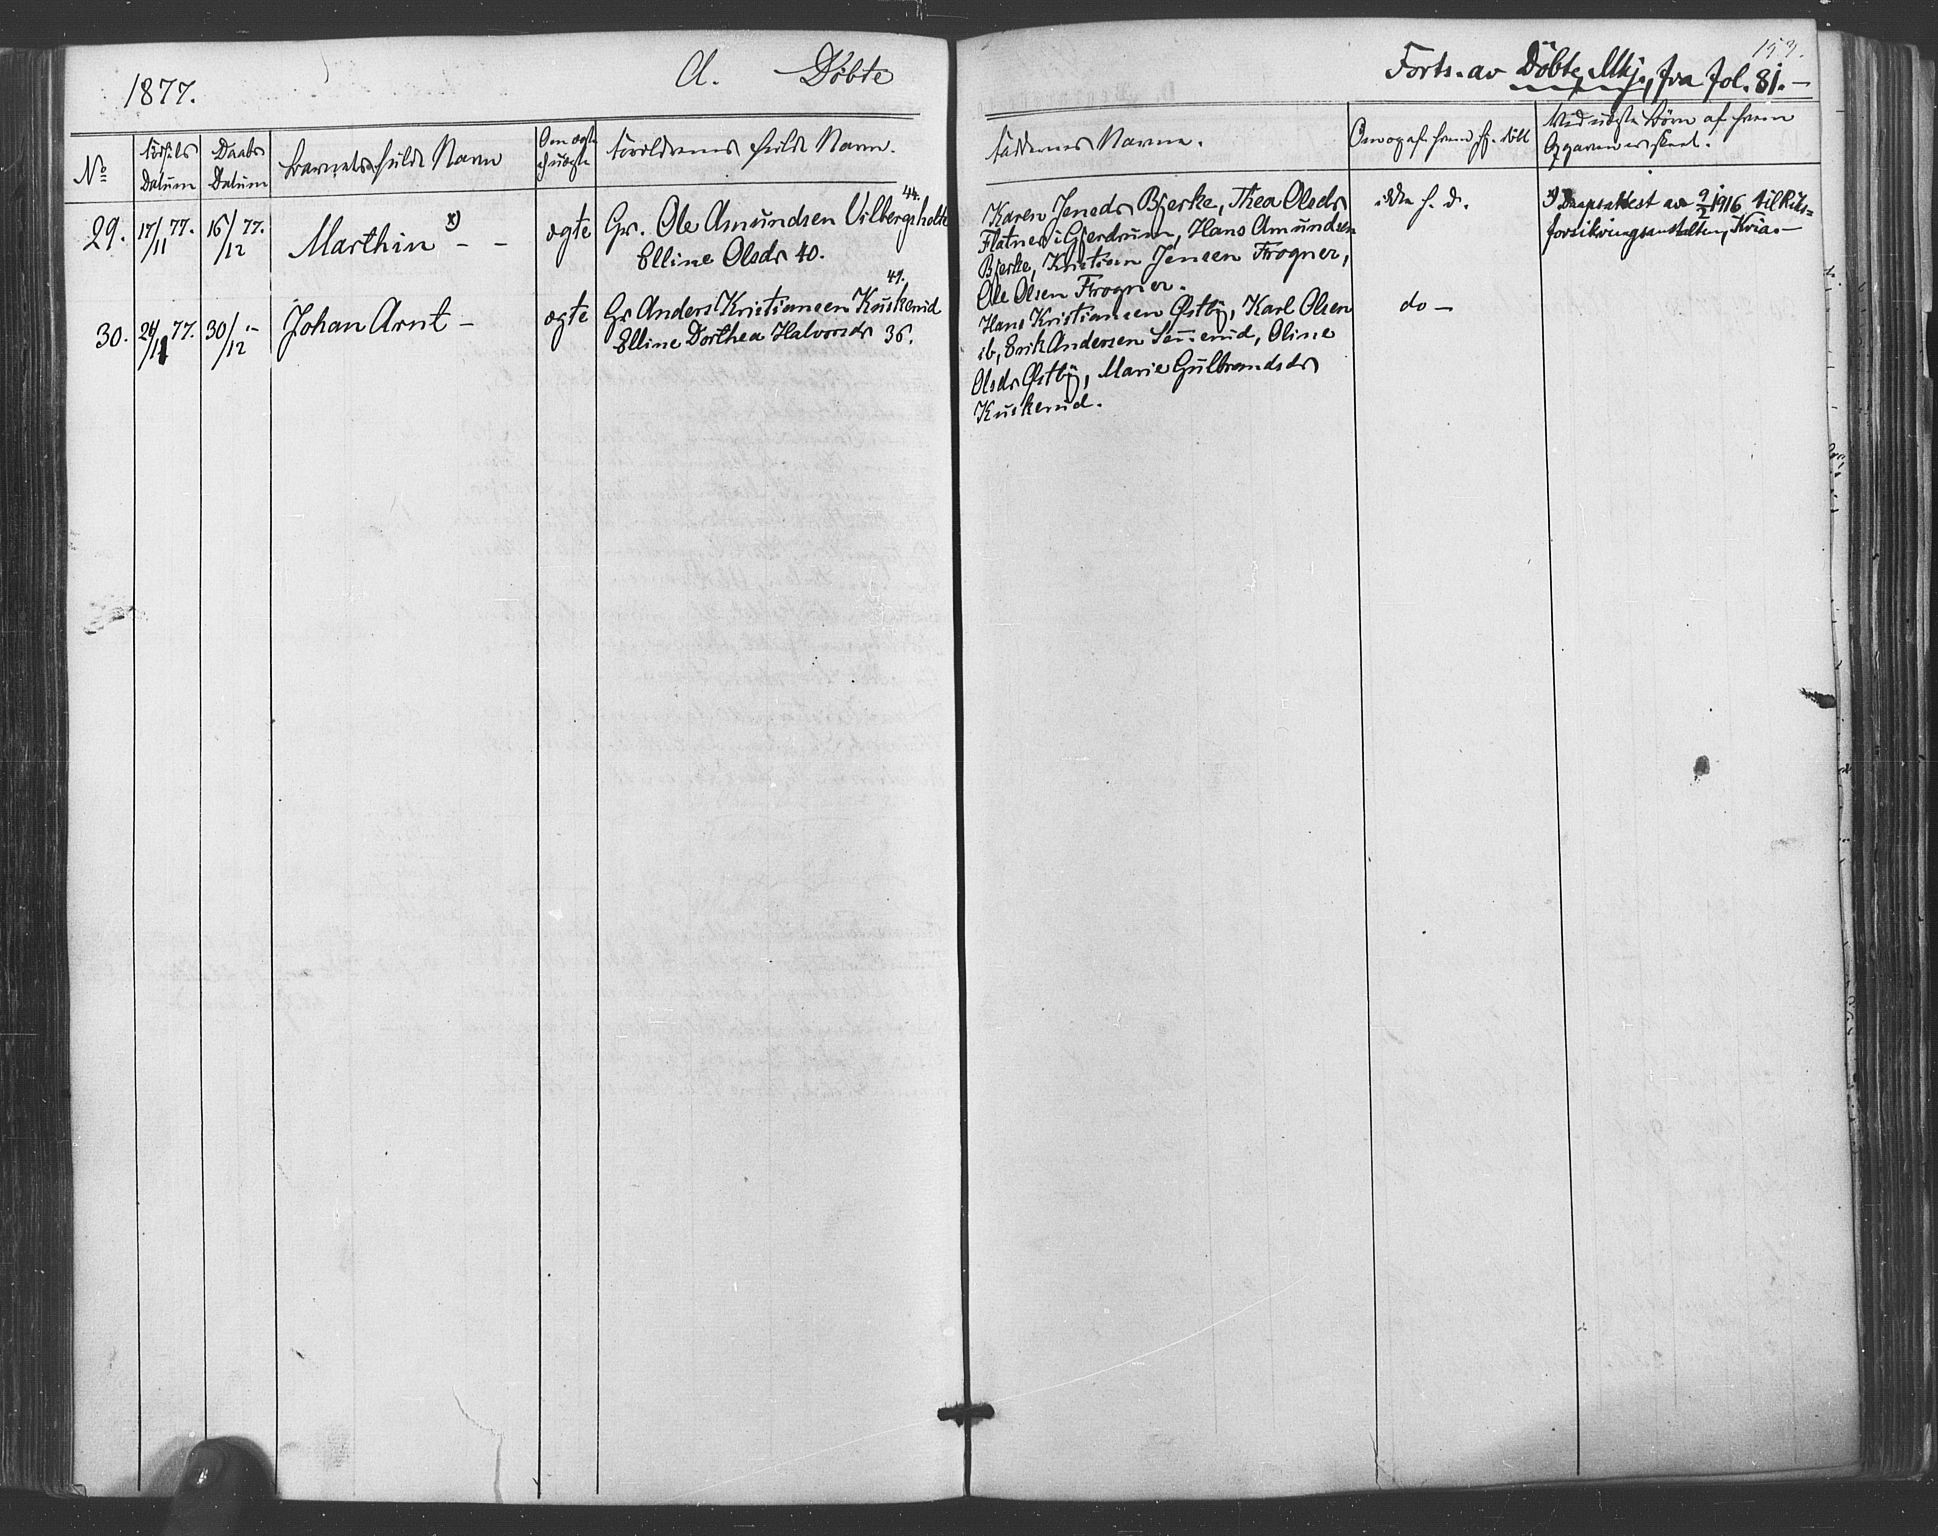 1877.
A. Døbte
153.
Forts. av Døbte, Mkj., fra fol. 81.-
No
Fødsels Datum
Daabs Datum
Barnets fulde Navn
Om ægte ell. uægte
Forældrenes fulde Navn.
Faddernes Navne.
29. 17/11 77. 16/12 77. Marthin x) - - ægte
Gr. Ole Amundsen Vilbergsholte 44.
Elline Olsdr 40.
Karen Jensdr Bjerke, Thea Olsdr
Flatner i Gjerdrum, Hans Amundsen
Bjerke, Kristian Jensen Frogner,
Ole Olsen Frogner.
ikke h. d.
x) Daapsattest av 9/2 1916 til Riks-
forsikringsanstalten, Kria.-
30. 24/11 77. 30/12 "- Johan Arnt - ægte
Gr Anders Kristiansen Kuskerud 49.
Elline Dorthea Halvorsdr 36.
Hans Kristiansen Østby, Karl Olsen
ib, Erik Andersen, Oline
Olsdr Østby, Marie Gulbrandsdr
Kuskerud.
do -